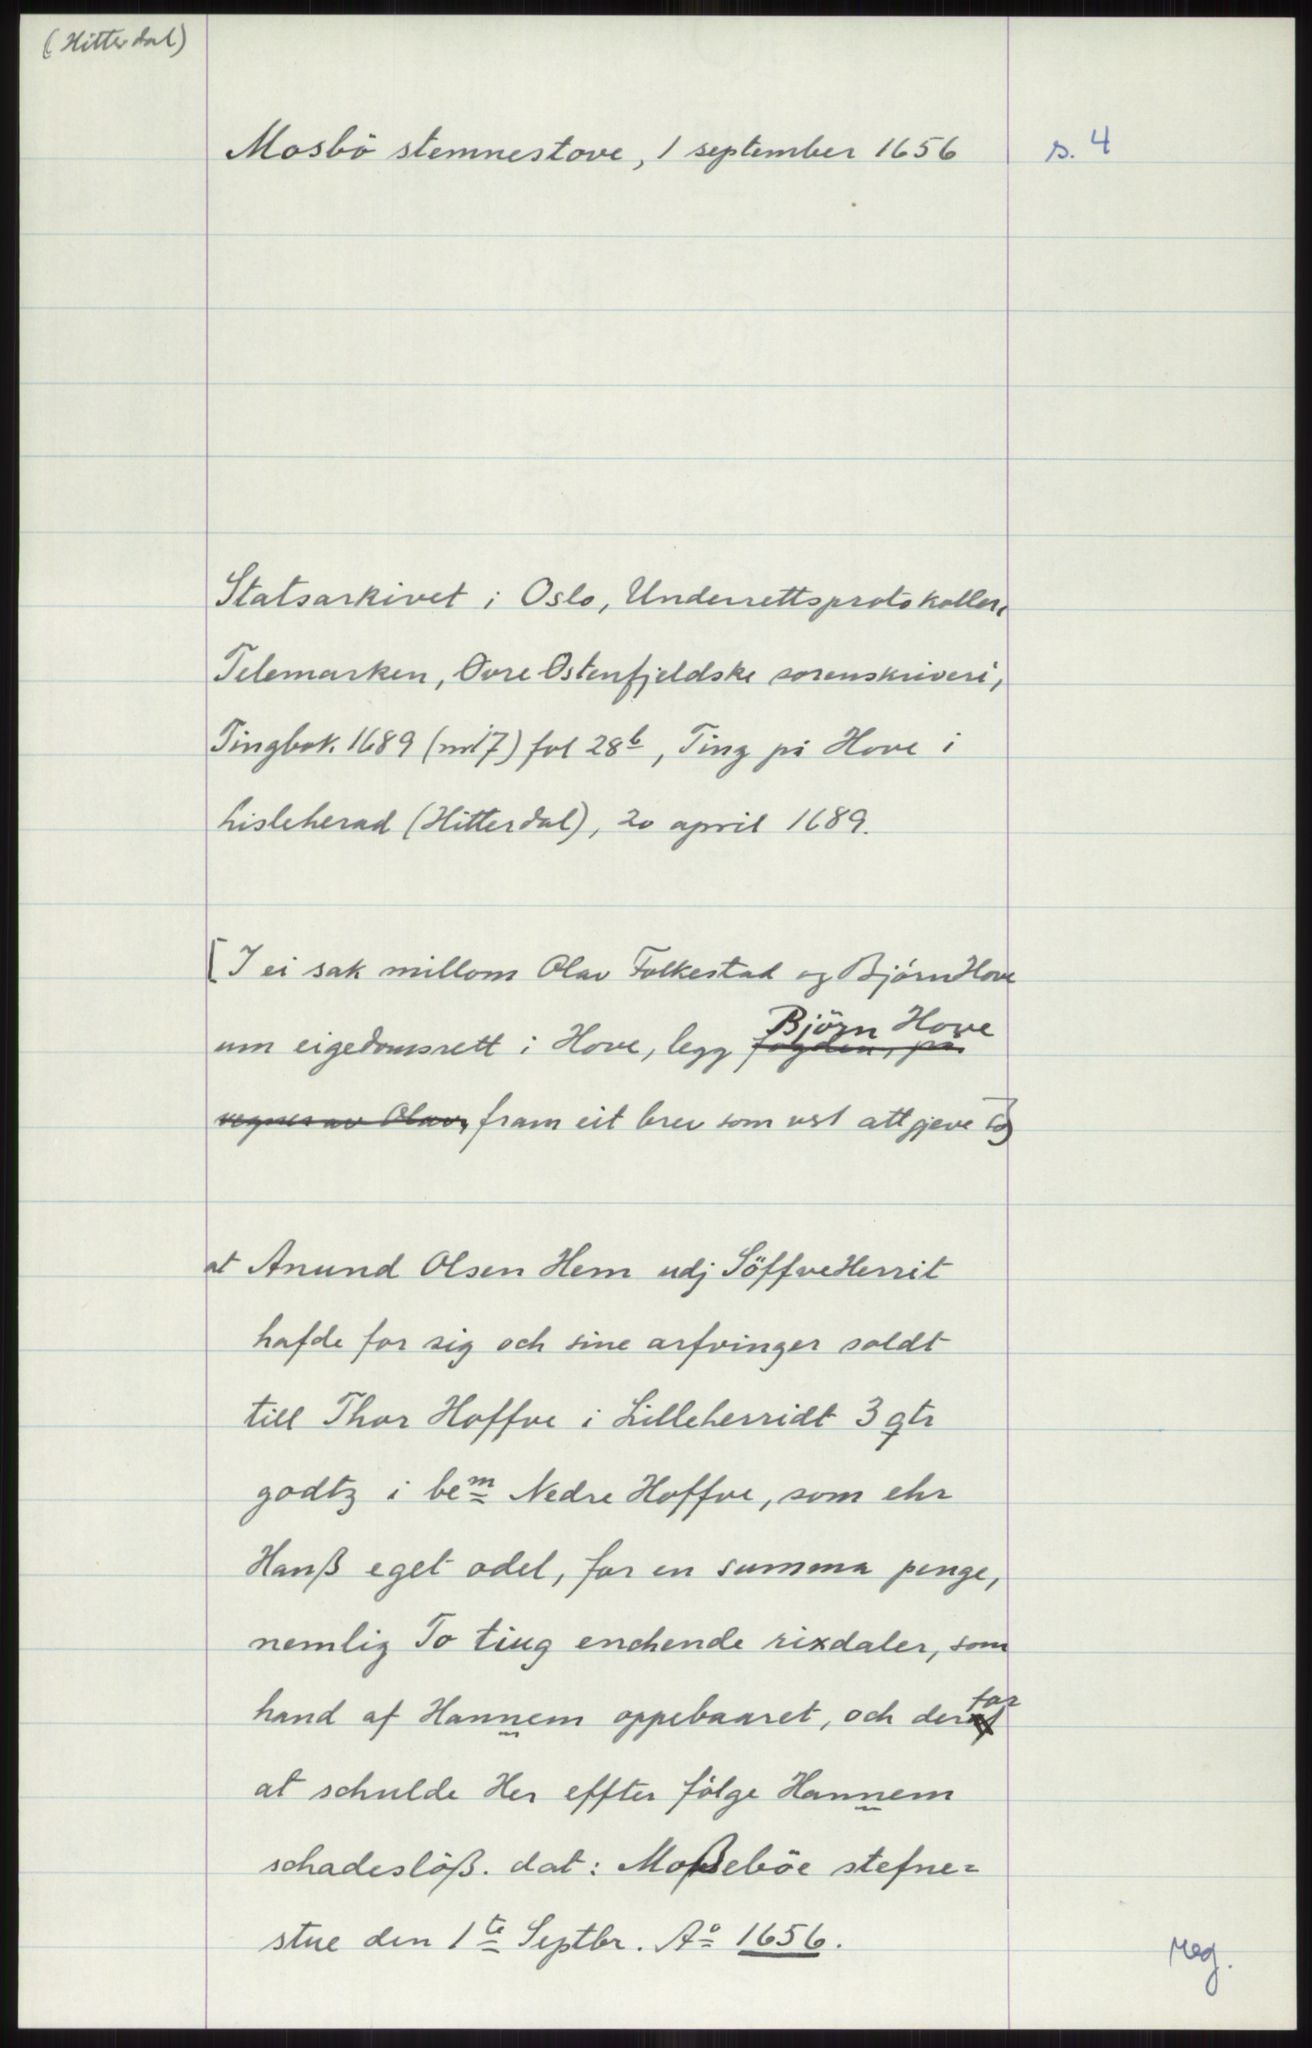 (Hitterdal)
Mosbö stemnestove, 1 september 1656
s. 4
Statsarkivet i Oslo, Underrettsprotokoller,
Telemarken, Øvre Østenfjeldske sorenskriveri,
Tingbok 1689 (nr 17) fol 28b, Ting på Hove i
Lisleherad (Hitterdal), 20 april 1689.
[I ei sak millom Olav Folkestad og Bjørn Hove
um eigedomsrett i Hove, legg fogden, på Björn Hove
vegner av Olav, fram eit brev som vst attgjeve so]
at Anund Olsen Hem udj SöffveHerrit
hafde for sig och sine arfvinger soldt
till Thor Hoffve i Lilleherridt 3 qtr
godtz i bem Nedre Hoffve, som ehr
Hanß eget odel, for en summa penge,
nemlig To tiug enchende rixdaler, som
hand af Hannem oppebaaret, och derfor
at schulde Her effter følge Hannem
schadesløß. dat: Moßebøe stefne=
stue den 1te Septbr. Ao 1656.
reg.